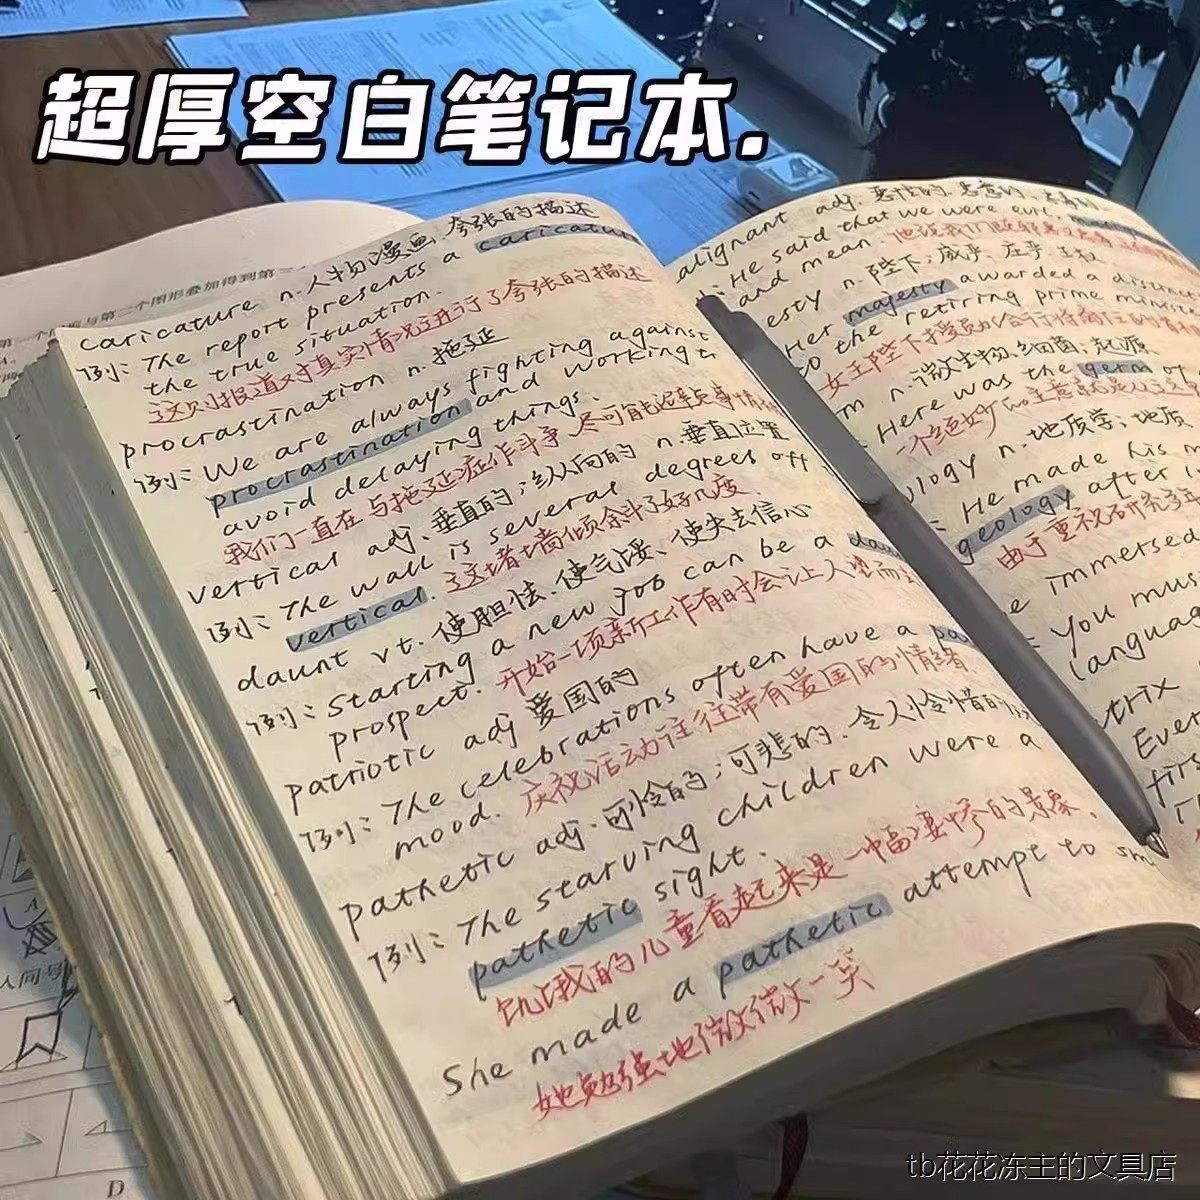 超厚空白笔记本.
caricature n.人物漫画,夸张的描述
例: The report presents a caricature
the true situation.
这则报道对真实情况进行了夸张的描述
procrastination n.拖延
例: We are always fighting against
procrastination and working
avoid delaying things.
我们一直在与拖延症作斗争,尽可能
vertical adj.垂直的;纵向的 n.垂直位置
例: The wall is several degrees off
vertical. 这堵墙倾斜了好几度
daunt vt.使胆怯、使气馁、使失去信心
例: Starting a new job can be a
prospect. 开始一项新工作有时会让人
patriotic adj 爱国的
例: The celebrations often have a
mood. 庆祝活动往往带有爱国的情绪
pathetic adj.可怜的;可悲的、令人怜惜的
例: The starving children were a
pathetic sight.
饥饿的儿童看起来是一幅凄惨的景象.
She made a pathetic attempt to
她勉强地微微一笑
alignant adj.
: He said that we were evil,
and mean.
esty n.陛下;威严、庄严、王权
Her majesty awarded a
to the retiring prime
女王陛下
m n.微生物,细菌;起源
Here was the germ of
ology n.地质学;地质
: He made his
geology after
由于重视研究
immersed
You mus
langua
trix
Eve
firs
第二个图形叠加得到第三
D
tb花花冻主的文具店